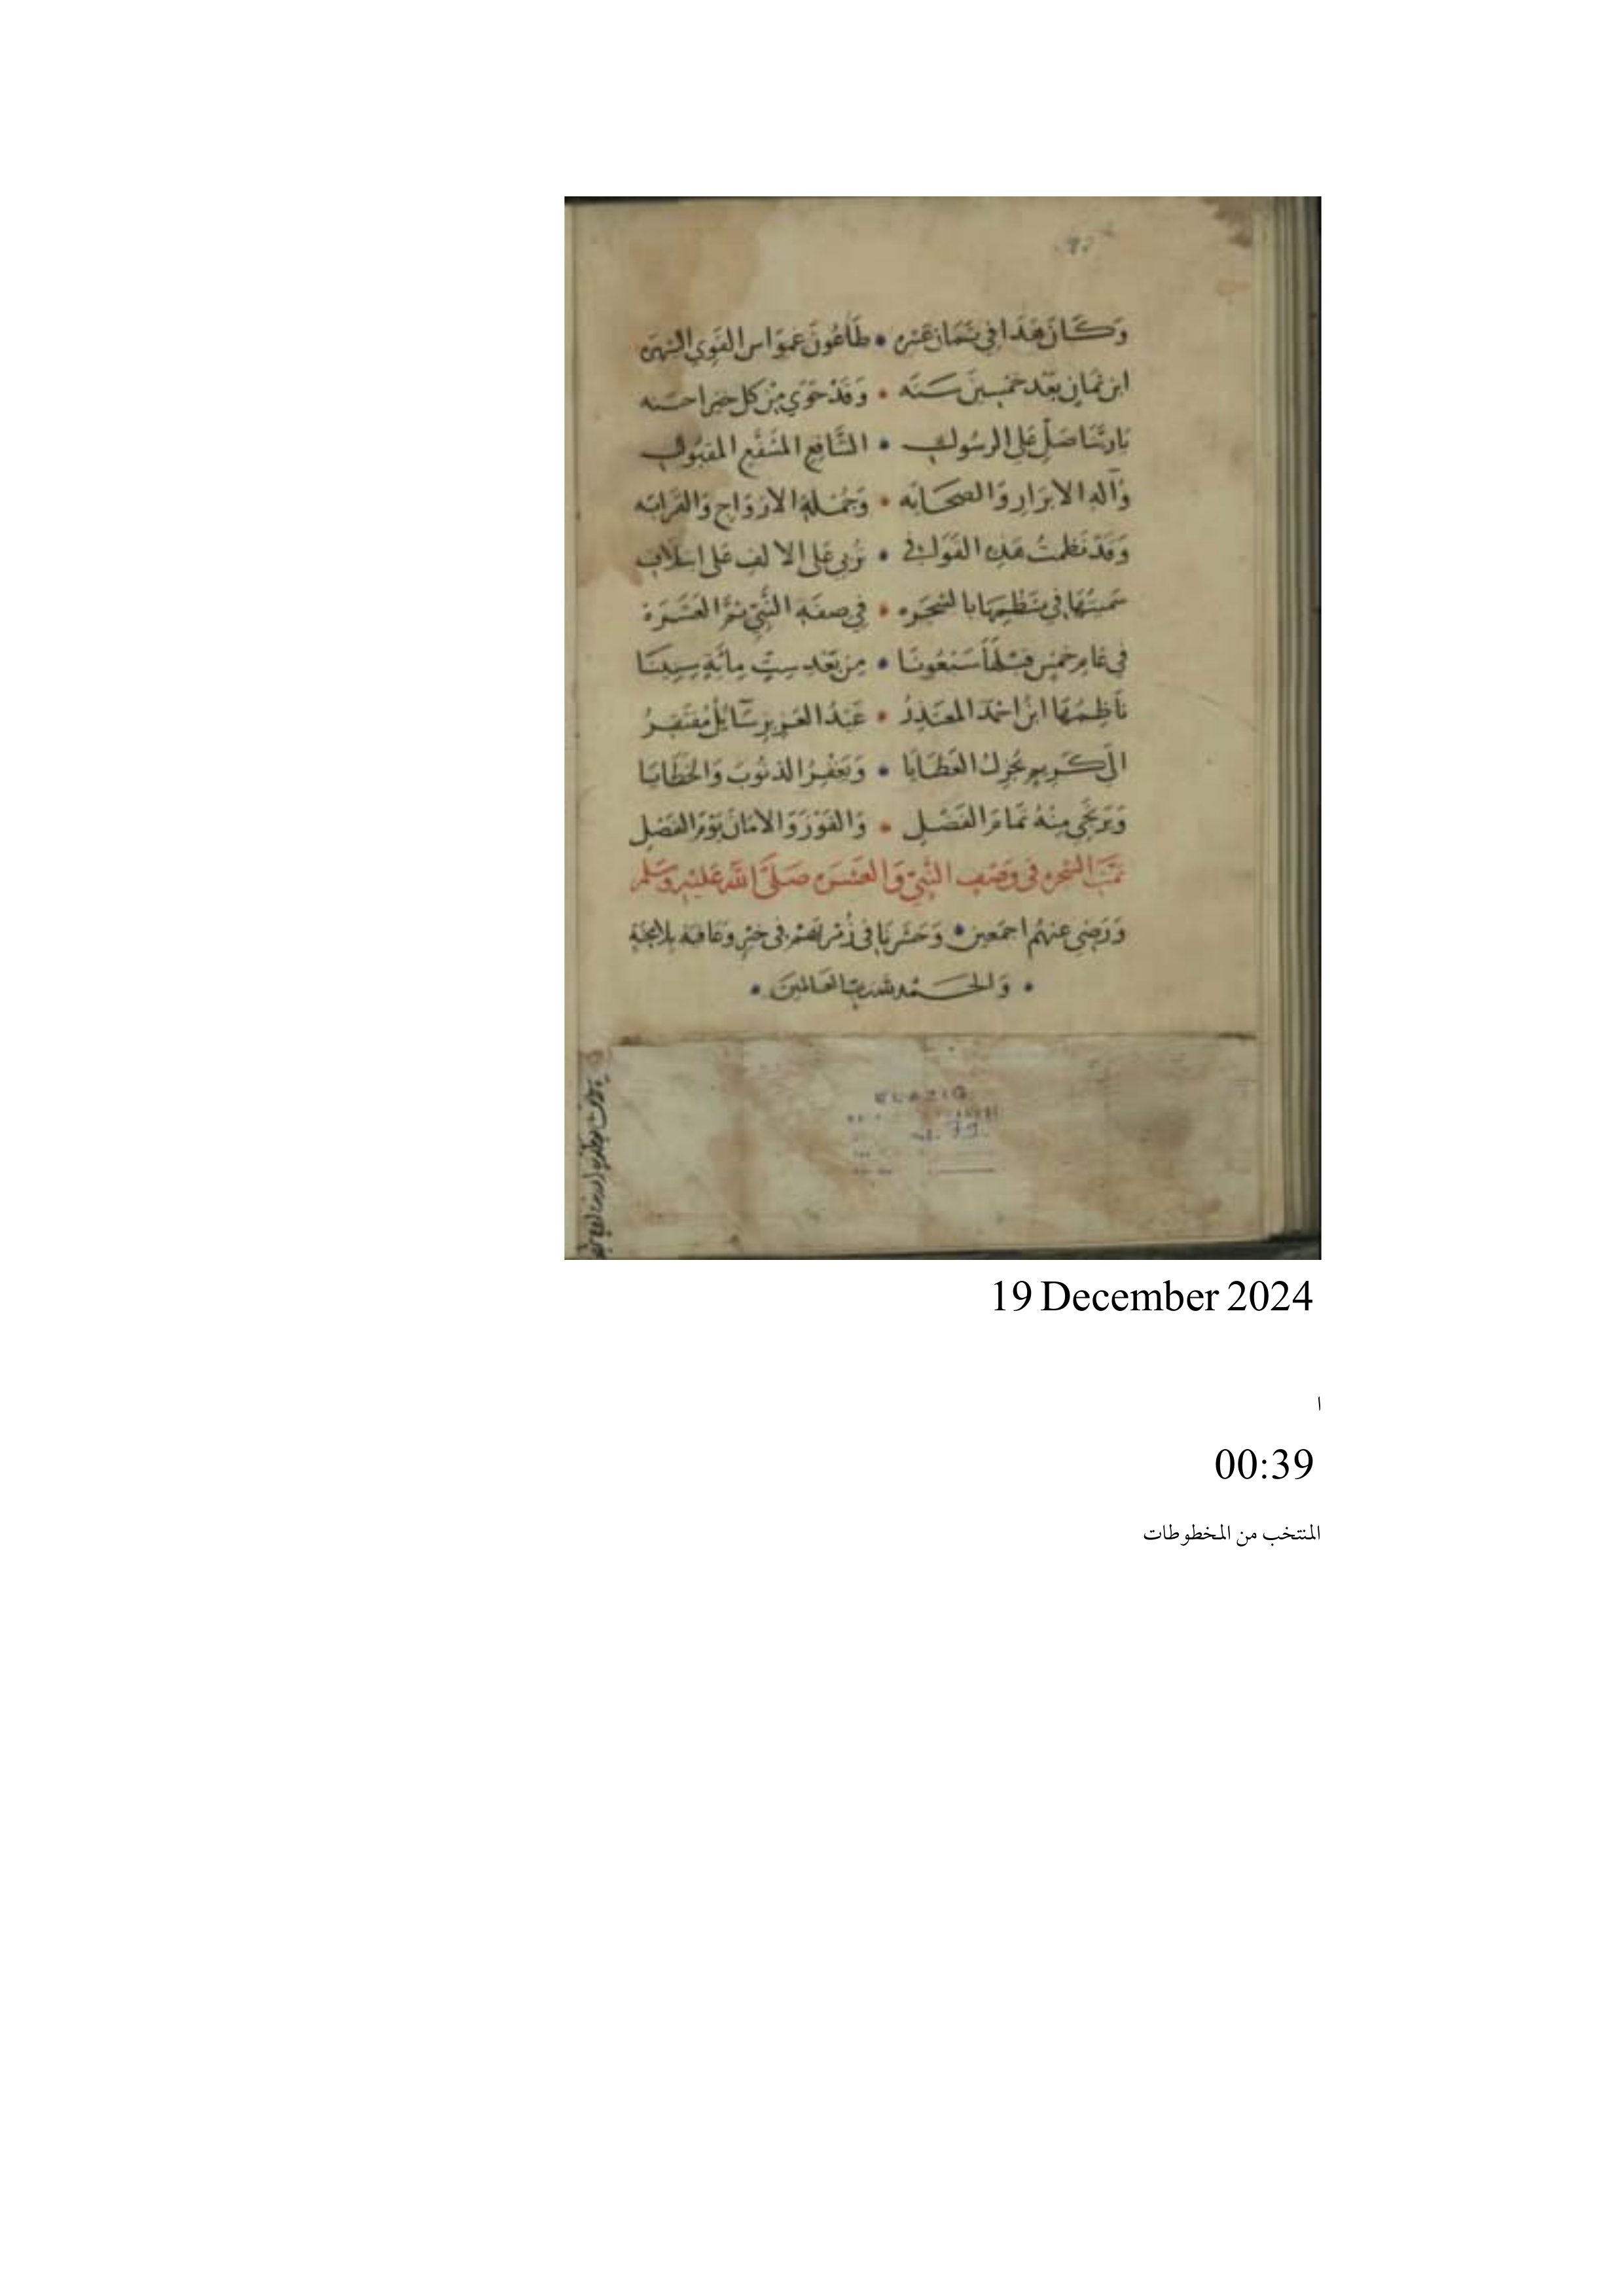 وَكَانَ هَذَا فِي ثَمَانَ عَشره • طَاعُونَ عَمَوَاس القَوِي الشهره
ابن ثمانٍ بَعْدَ خمسِينَ سَنَه • وَقَدْ حَوَي مِنْ كل خيرٍ احسَنه
يَا رَبَّنَا صَلِّ عَلى الرسُولِ • الشَّافِعِ المُشَفَّعِ المَقبُولِ
وَآلهِ الابرَارِ وَالصحَابَه • وَجُملَةِ الازوَاجِ وَالقَرابَه
وَقَدْ نَظمتُ هَذِه القَوَافي • تُربي عَلى الالفِ عَلى
سَميتُهَا فِي نَظمِهَا بالشجَره • فِي صِفَةِ النَّبِيّ ثُمَّ العَشَرَة
في عَامِ خمسٍ قبلَهَا سَبْعُونَا • مِن بَعْدِ سِتِّ مِائَةٍ سِنِينَا
نَاظِمُهَا ابنُ احمَدَ المعتَذِرُ • عَبْدُ العَزيزِ سَآئِلٌ مُفتَقِرُ
الَى كَرِيمٍ يُجْزِلُ العَطَايَا • وَيَغْفِرُ الذنُوبَ وَالخَطَايَا
وَيَرتَجِي مِنْهُ تَمَامَ الفَضْلِ • وَالفَوْزَ وَالامَانَ يَوْمَ الفَصْلِ
تَمَّتِ الشجره في وَصْفِ النَّبِيّ وَالعَشَره صَلَّى اللَّه عَليْهِ وَسَلم
وَرَضِي عنهُم اجمَعين • وَحَشَرنَا في زُمْرَتهمْ في خَيرٍ وَعَافيَة بلا محنَةٍ
• وَالحَمْد لله رَبّ العَالمينَ •
ELAZIG
79
19 December 2024
ا
00:39
المنتخب من المخطوطات